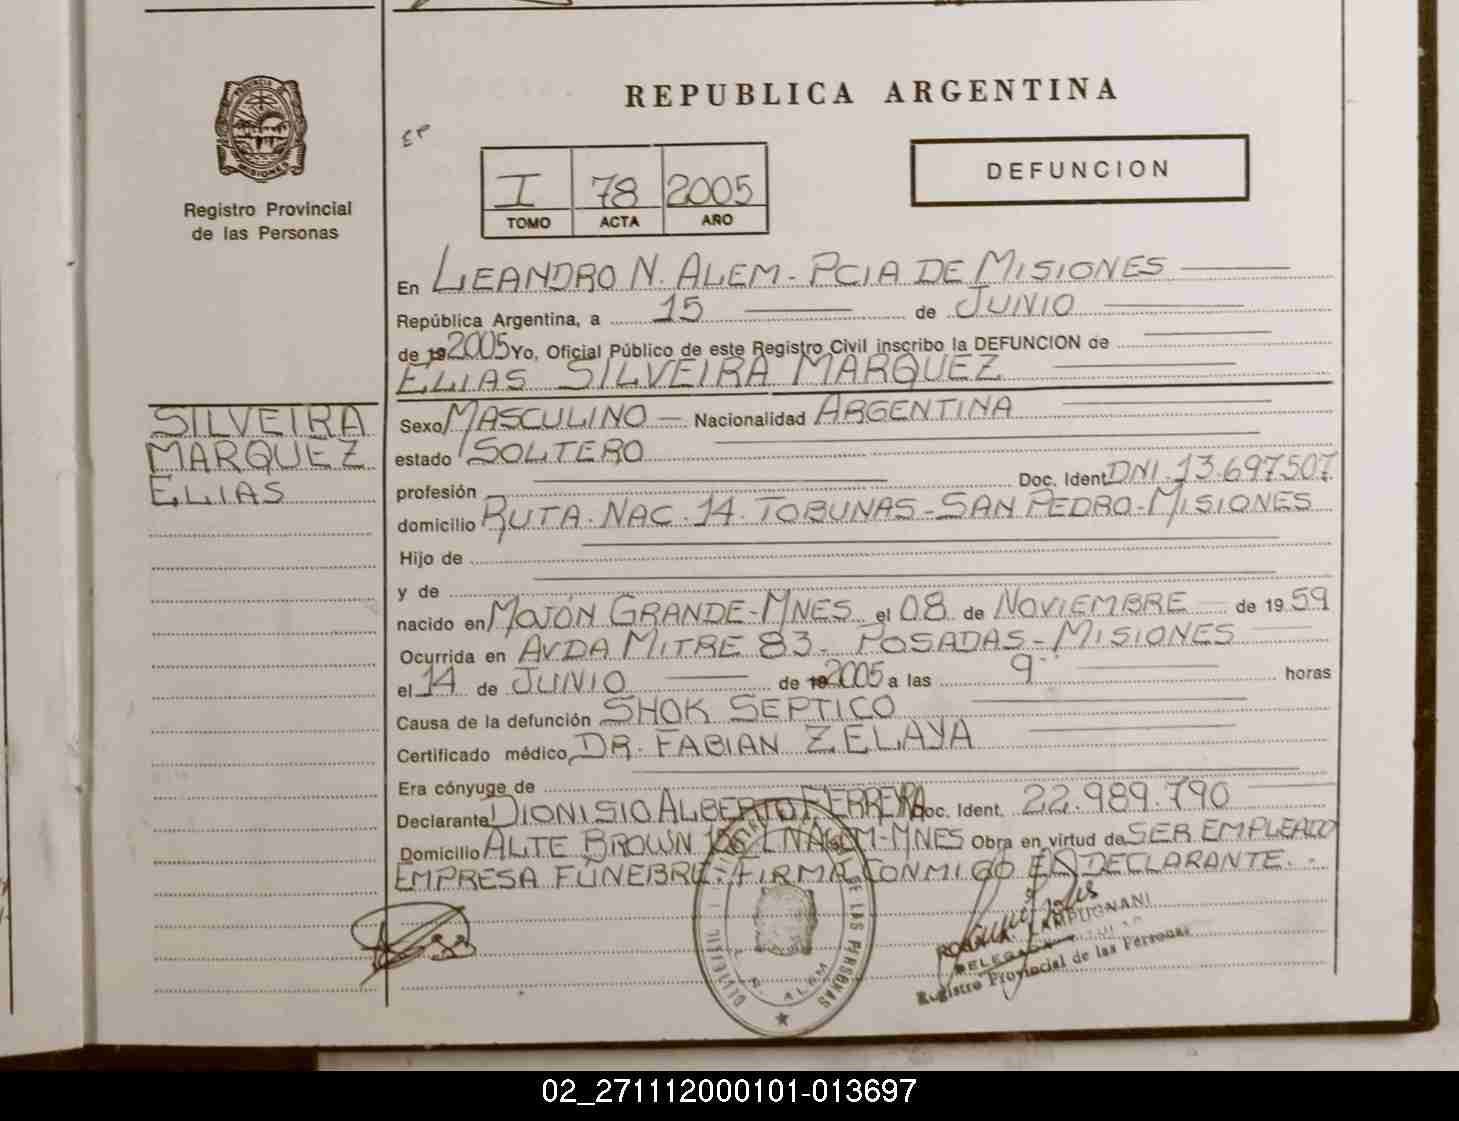 REPUBLICA ARGENTINA
PROVINCIA DE
MISIONES
Registro Provincial
de las Personas
EP
I 78 2005
TOMO ACTA AÑO
DEFUNCION
En LEANDRO N. ALEM - PCIA DE MISIONES
República Argentina, a 15 de JUNIO
de 19 2005 Yo, Oficial Público de este Registro Civil inscribo la DEFUNCION de
ELIAS SILVEIRA MARQUEZ
SILVEIRA
MARQUEZ
ELIAS
Sexo MASCULINO Nacionalidad ARGENTINA
estado SOLTERO
profesión Doc. Ident. DNI. 13.697507
domicilio RUTA. NAC. 14. TOBUNAS - SAN PEDRO - MISIONES
Hijo de
y de
nacido en MOJÓN GRANDE - MNES el 08 de NOVIEMBRE de 19 59
Ocurrida en AVDA MITRE 83. POSADAS - MISIONES
el 14 de JUNIO de 19 2005 a las 9 horas
Causa de la defunción SHOK SEPTICO
Certificado médico DR. FABIAN ZELAYA
Era cónyuge de
Declarante DIONISIO ALBERTO FERREYRA Doc. Ident. 22.989.790
Domicilio ALTE BROWN LNALEM - MNES Obra en virtud de SER EMPLEADO
EMPRESA FÚNEBRE - FIRMA CONMIGO EL DECLARANTE. -
DE LAS PERSONAS
ALEM
Registro Provincial de las Personas
02_271112000101-013697